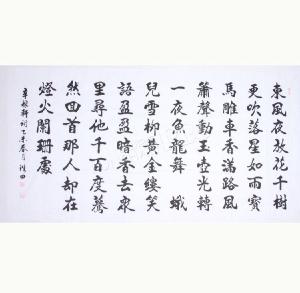 東風夜放花千樹
更吹落星如雨寶
馬雕車香滿路風
簫聲動玉壺光轉
一夜魚龍舞蛾
兒雪柳黃金縷笑
語盈盈暗香去衆
里尋他千百度驀
然回首那人却在
燈火闌珊處
辛棄疾詞